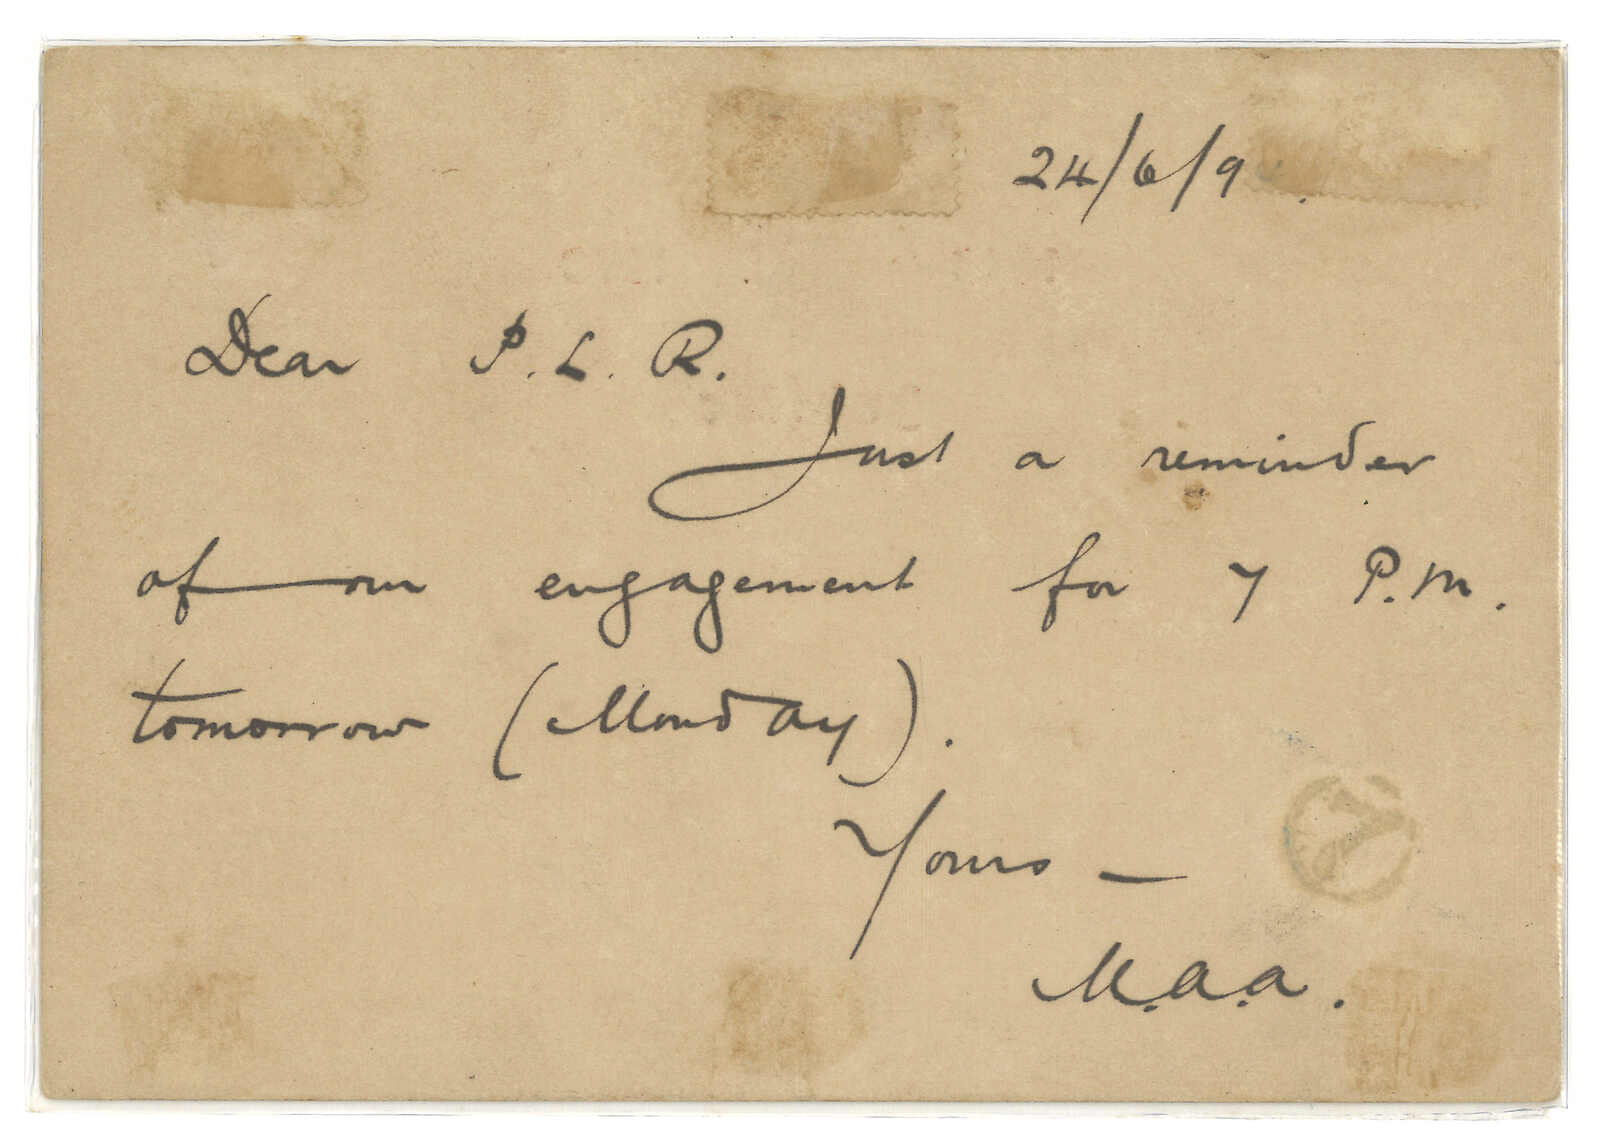 24/6/9 .
Dear P. L. R.
Just a reminder
of our engagement for 7 P.M.
tomorrow (Monday).
Yours —
M.A.A.